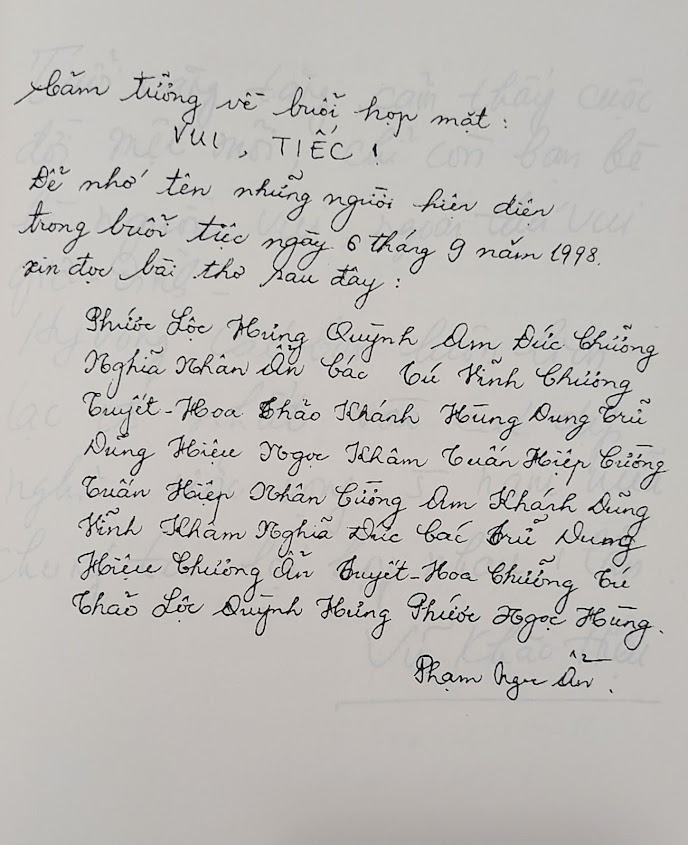 Cảm tưởng về buổi họp mặt :
VUI, TIẾC !
Để nhớ tên những người hiện diện
trong buổi tiệc ngày 6 tháng 9 năm 1998.
xin đọc bài thơ sau đây :
Phước Lộc Hưng Quỳnh Am Đức Chưỡng
Nghĩa Nhân Ẩn Các Tú Vĩnh Chương
Tuyết-Hoa Thảo Khánh Hùng Dung Trữ
Dũng Hiệu Ngọc Khâm Tuấn Hiệp Cường
Tuấn Hiệp Nhân Cường Am Khánh Dũng
Vĩnh Khâm Nghĩa Đức Các Trữ Dung
Hiệu Chương Ẩn Tuyết-Hoa Chưỡng Tú
Thảo Lộc Quỳnh Hưng Phước Ngọc Hùng.
Phạm Ngư Ẩn.